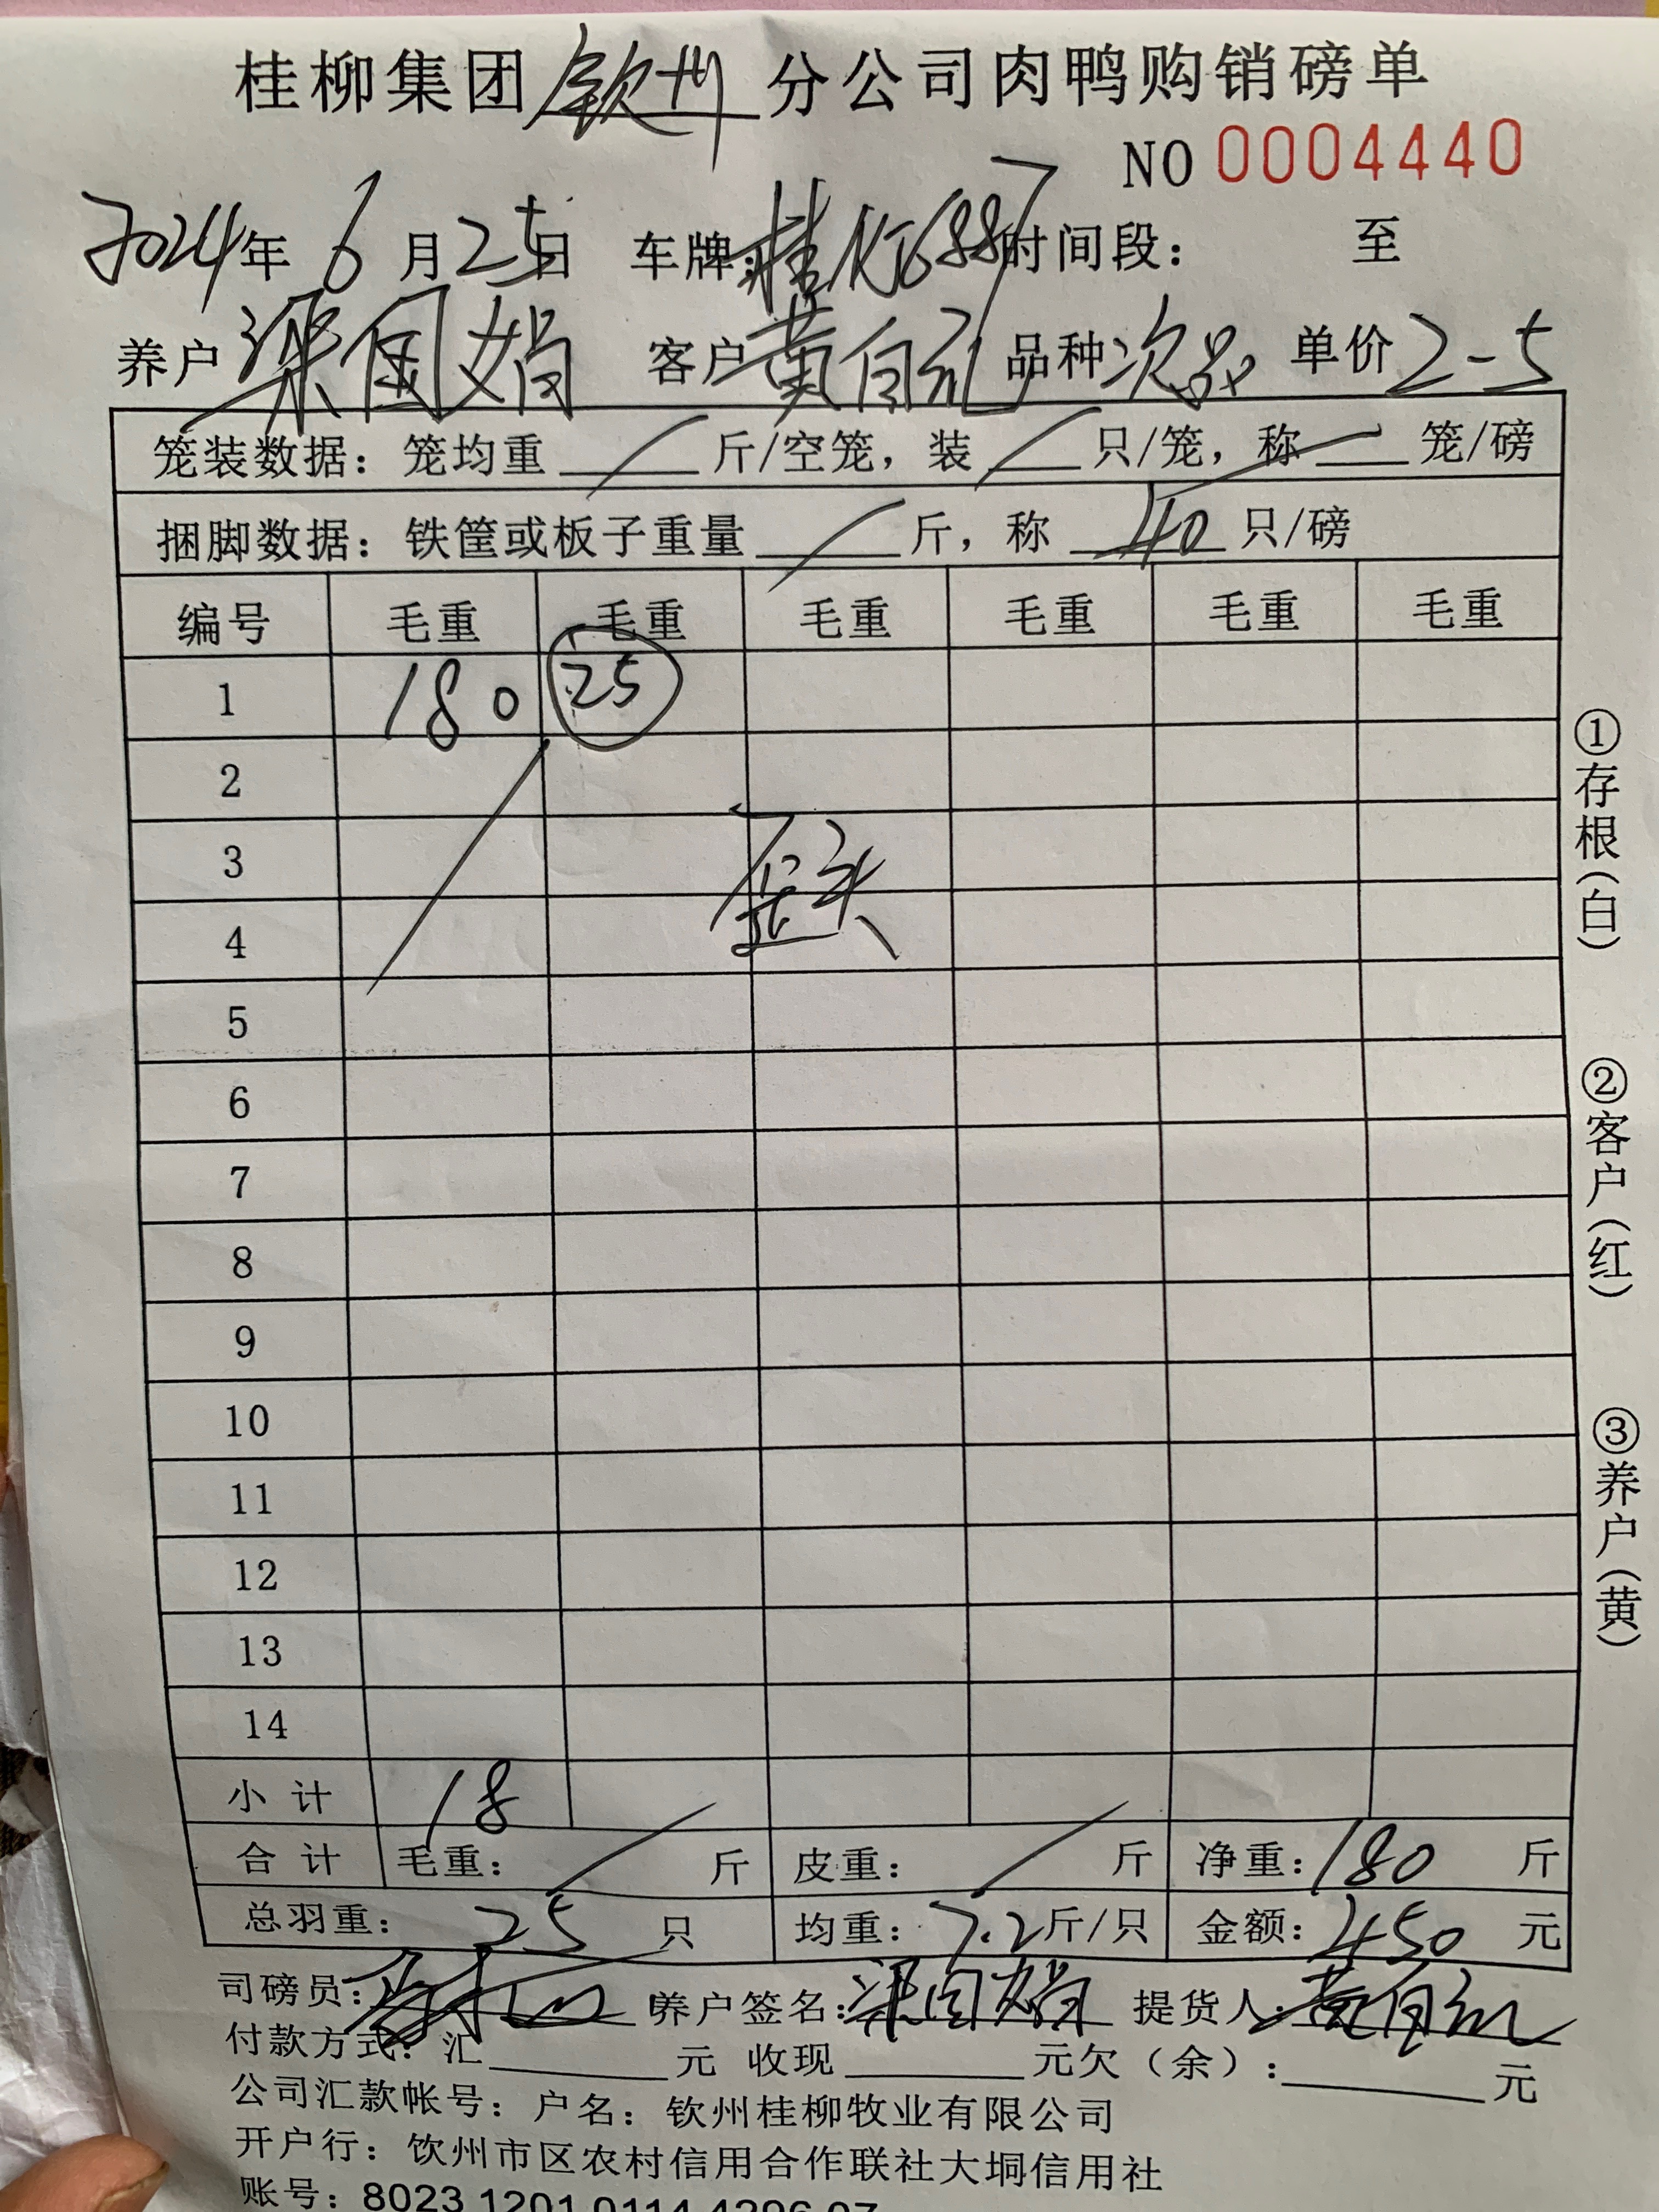 桂柳集团钦州分公司肉鸭购销磅单
NO 0004440
2024年 6月25日 车牌: 桂KJ6887 时间段: 至
养户 梁国娟 客户 黄自 品种 次品 单价 2-5
笼装数据: 笼均重 斤/空笼, 装 只/笼, 称 笼/磅
捆脚数据: 铁筐或板子重量 斤, 称 40 只/磅
编号 毛重 毛重 毛重 毛重 毛重 毛重
1 180 25
2
3
歪头
4
5
6
7
8
9
10
11
12
13
14
小计 18
合计 毛重: 斤 皮重: 斤 净重: 180 斤
总羽重: 25 只 均重: 7.2斤/只 金额: 450 元
司磅员: 养户签名: 梁国娟 提货人: 黄自
付款方式: 汇 元 收现 元欠(余): 元
公司汇款帐号: 户名: 钦州桂柳牧业有限公司
开户行: 钦州市区农村信用合作联社大垌信用社
账号: 8023 1201 0114 4296 07
①存根(白)
②客户(红)
③养户(黄)